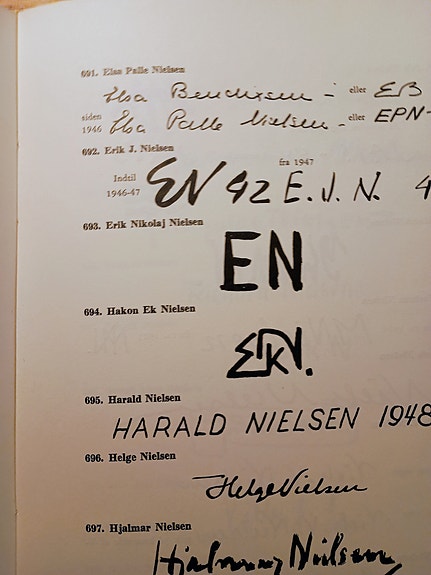 691. Elsa Palle Nielsen
Elsa Bendixsen - eller EB
siden 1946 Elsa Palle Nielsen - eller EPN-
692. Erik J. Nielsen
fra 1947
Indtil 1946-47 EN 42 E. J. N. 4
693. Erik Nikolaj Nielsen
EN
694. Hakon Ek Nielsen
695. Harald Nielsen
HARALD NIELSEN 1948
696. Helge Nielsen
Helge Nielsen
697. Hjalmar Nielsen
Hjalmar Nielsen